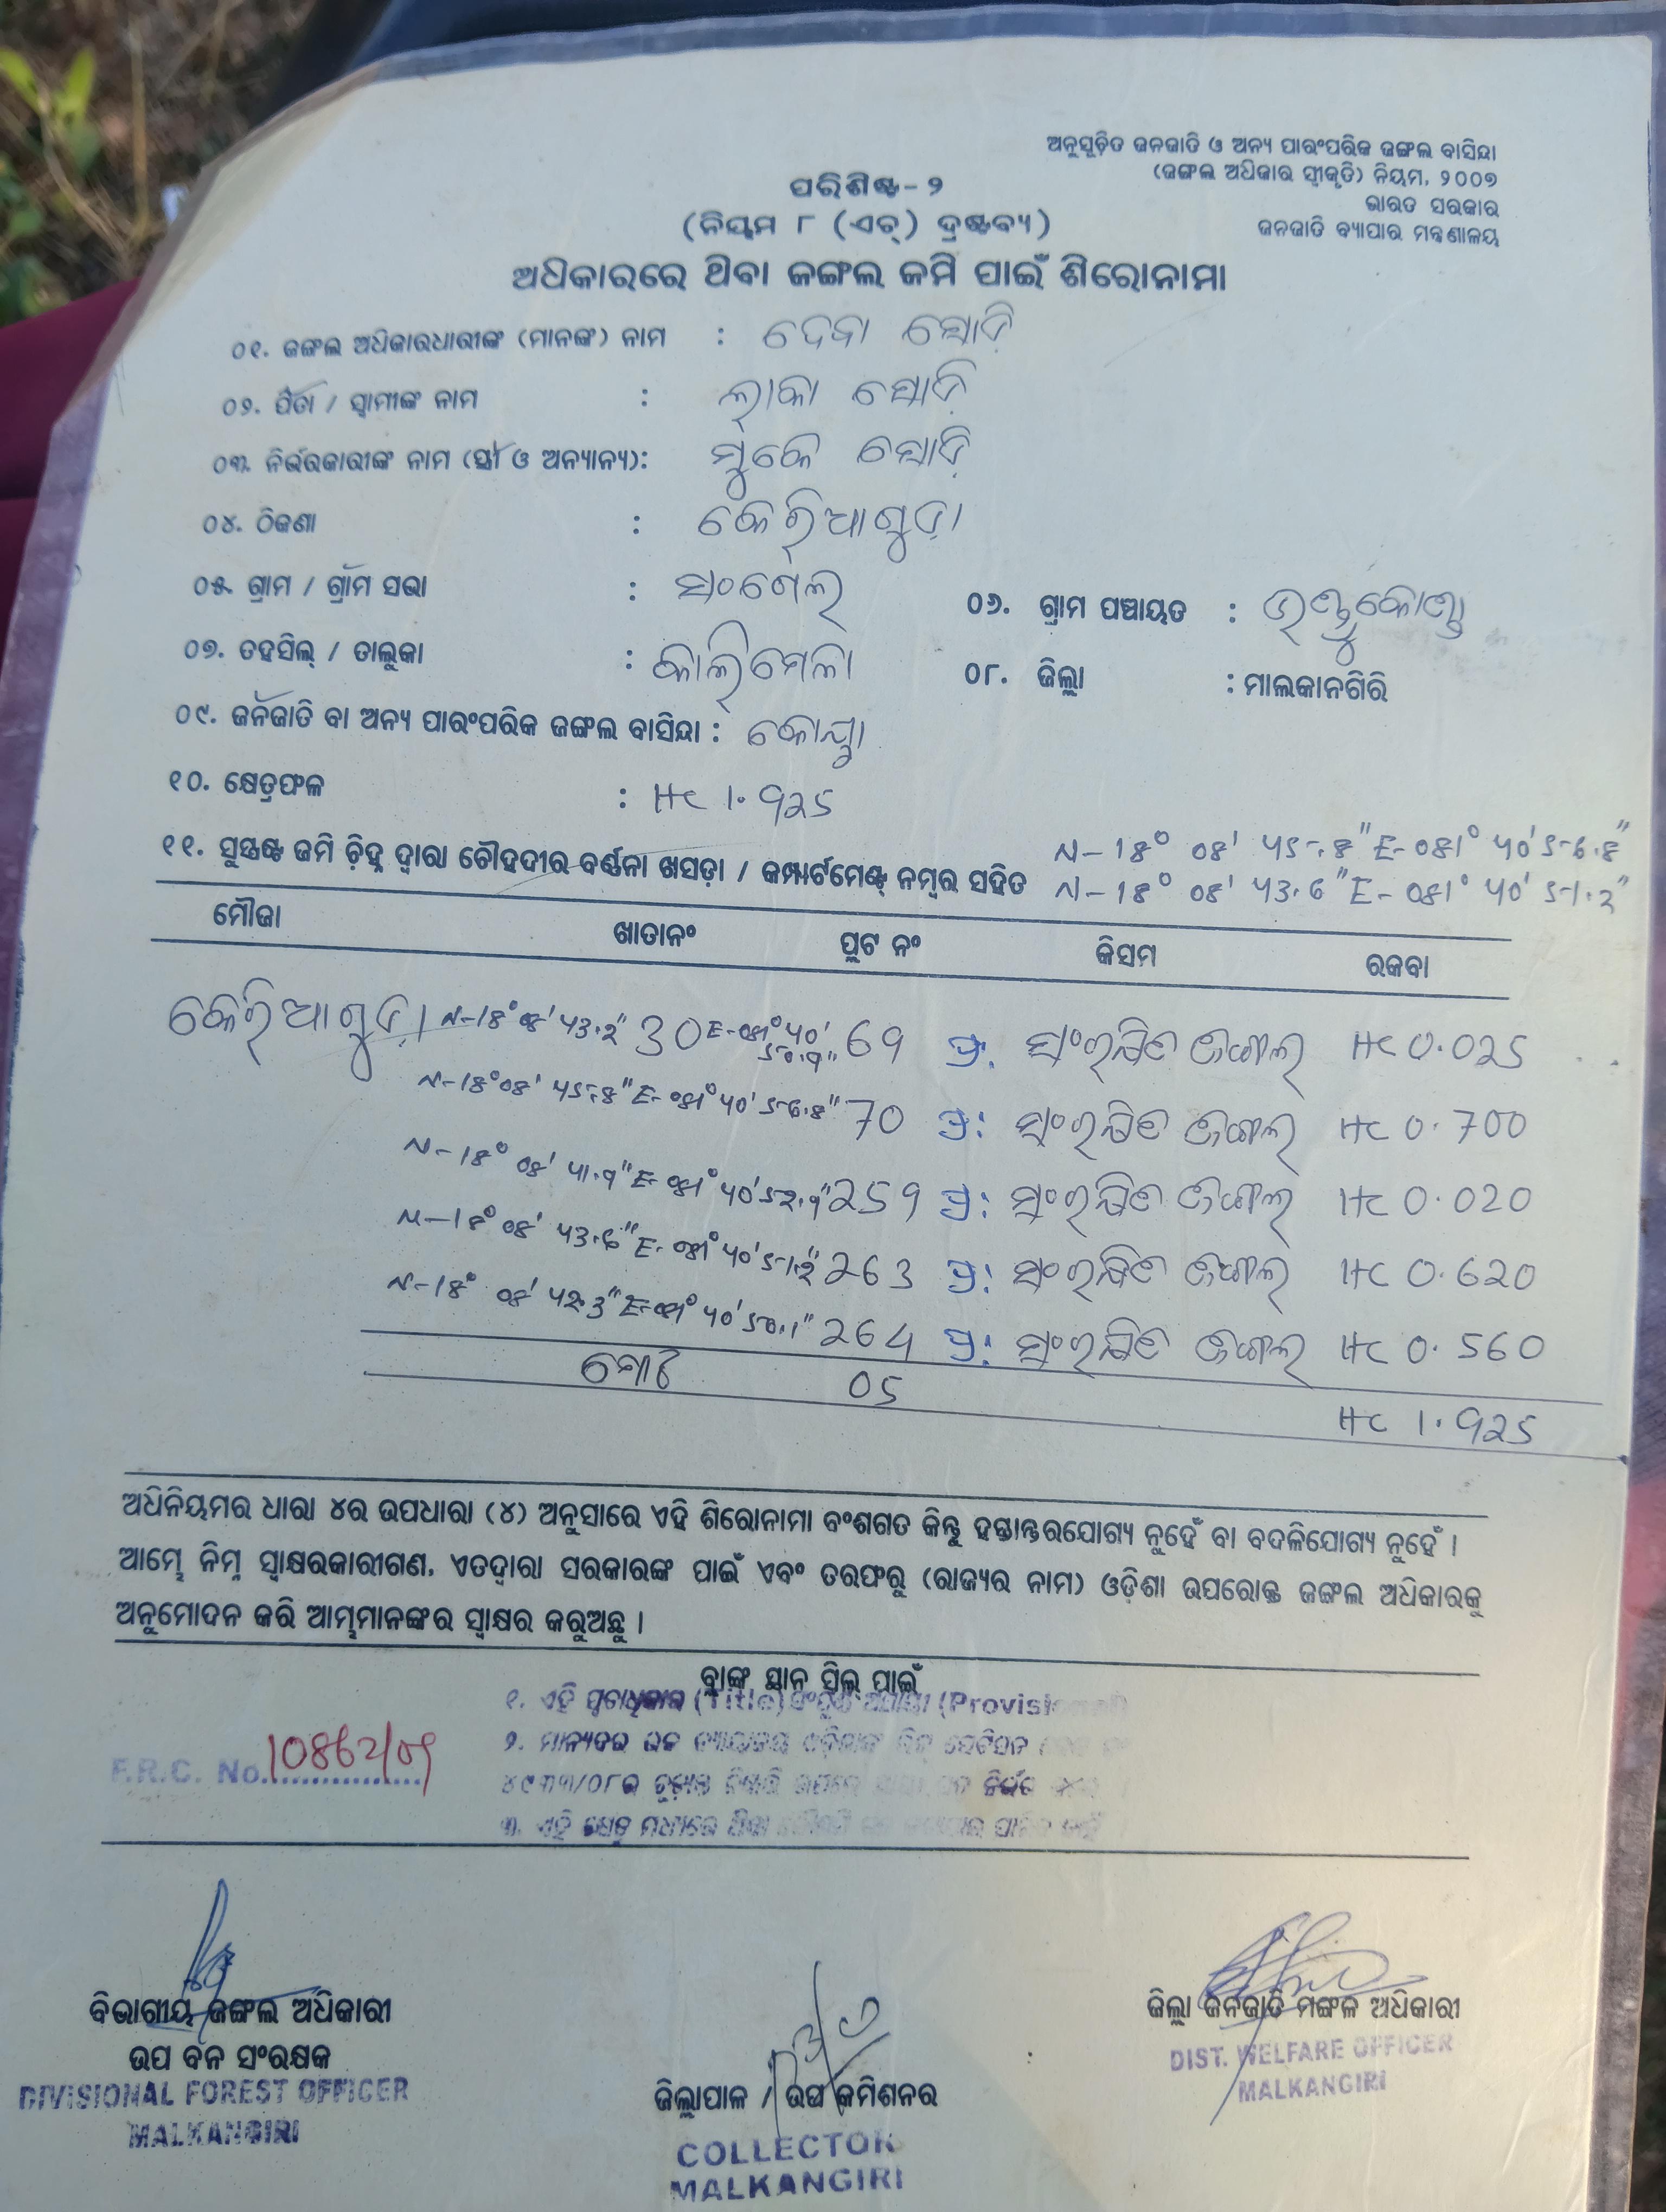 ଅନୁସୂଚିତ ଜନଜାତି ଓ ଅନ୍ୟ ପାରଂପରିକ ଜଙ୍ଗଲ ବାସିନ୍ଦା
(ଜଙ୍ଗଲ ଅଧିକାର ସ୍ୱୀକୃତି) ନିୟମ, ୨୦୦୭
ଭାରତ ସରକାର
ଜନଜାତି ବ୍ୟାପାର ମନ୍ତ୍ରଣାଳୟ
ପରିଶିଷ୍ଟ- ୨
(ନିୟମ ୮ (ଏଚ୍) ଦ୍ରଷ୍ଟବ୍ୟ)
ଅଧିକାରରେ ଥିବା ଜଙ୍ଗଲ ଜମି ପାଇଁ ଶିରୋନାମା
୦୧. ଜଙ୍ଗଲ ଅଧିକାରଧାରୀଙ୍କ (ମାନଙ୍କ) ନାମ : ଦେବା ମାଡ଼ି
୦୨. ପିତା / ସ୍ୱାମୀଙ୍କ ନାମ : ଲାକା ମାଡ଼ି
୦୩. ନିର୍ଭରକାରୀଙ୍କ ନାମ (ସ୍ତ୍ରୀ ଓ ଅନ୍ୟାନ୍ୟ): ମୁକେ ମାଡ଼ି
୦୪. ଠିକଣା : କେରିଆଗୁଡ଼ା
୦୫. ଗ୍ରାମ / ଗ୍ରାମ ସଭା :
୦୬. ଗ୍ରାମ ପଞ୍ଚାୟତ :
୦୭. ତହସିଲ୍ / ତାଲୁକା : କାଲିମେଳା
୦୮. ଜିଲ୍ଲା : ମାଲକାନଗିରି
୦୯. ଜନଜାତି ବା ଅନ୍ୟ ପାରଂପରିକ ଜଙ୍ଗଲ ବାସିନ୍ଦା : କୋୟା
୧୦. କ୍ଷେତ୍ରଫଳ : Hc 1.925
୧୧. ସୁସ୍ପଷ୍ଟ ଜମି ଚିହ୍ନ ଦ୍ୱାରା ଚୌହଦୀର ବର୍ଣ୍ଣନା ଖସଡ଼ା / କମ୍ପାର୍ଟମେଣ୍ଟ୍ ନମ୍ବର ସହିତ
N-18° 08' 45.8" E-081° 40' 56.8"
N-18° 08' 43.6" E-081° 40' 51.2"
ମୌଜା ଖାତାନଂ ପ୍ଲଟ ନଂ କିସମ ରକବା
କେରିଆଗୁଡ଼ା N-18° 08' 43.2" 30 E-081° 40' 50.9" 69 ପ୍ର: ସଂରକ୍ଷିତ ଜଙ୍ଗଲ Hc 0.025
N-18° 08' 45.8" E-081° 40' 56.8" 70 ପ୍ର: ସଂରକ୍ଷିତ ଜଙ୍ଗଲ Hc 0.700
N-18° 08' 41.9" E-081° 40' 52.9" 259 ପ୍ର: ସଂରକ୍ଷିତ ଜଙ୍ଗଲ Hc 0.020
N-18° 08' 43.6" E-081° 40' 51.2" 263 ପ୍ର: ସଂରକ୍ଷିତ ଜଙ୍ଗଲ Hc 0.620
N-18° 08' 42.3" E-081° 40' 50.1" 264 ପ୍ର: ସଂରକ୍ଷିତ ଜଙ୍ଗଲ Hc 0.560
ମୋଟ 05 Hc 1.925
ଅଧିନିୟମର ଧାରା ୪ର ଉପଧାରା (୪) ଅନୁସାରେ ଏହି ଶିରୋନାମା ବଂଶଗତ କିନ୍ତୁ ହସ୍ତାନ୍ତରଯୋଗ୍ୟ ନୁହେଁ ବା ବଦଳିଯୋଗ୍ୟ ନୁହେଁ ।
ଆମ୍ଭେ ନିମ୍ନ ସ୍ୱାକ୍ଷରକାରୀଗଣ, ଏତଦ୍ୱାରା ସରକାରଙ୍କ ପାଇଁ ଏବଂ ତରଫରୁ (ରାଜ୍ୟର ନାମ) ଓଡ଼ିଶା ଉପରୋକ୍ତ ଜଙ୍ଗଲ ଅଧିକାରକୁ
ଅନୁମୋଦନ କରି ଆମ୍ଭମାନଙ୍କର ସ୍ୱାକ୍ଷର କରୁଅଛୁ ।
ବ୍ଲାଙ୍କ ସ୍ଥାନ ସିଲ୍ ପାଇଁ
୧. ଏହି (Title)
୨. ମାନ୍ୟବର ଉଚ୍ଚ
F.R.C. No. 10862/09
୩. ଏହି
ବିଭାଗୀୟ ଜଙ୍ଗଲ ଅଧିକାରୀ
ଉପ ବନ ସଂରକ୍ଷକ
DIVISIONAL FOREST OFFICER
MALKANGIRI
ଜିଲ୍ଲାପାଳ / ଉପ କମିଶନର
COLLECTOR
MALKANGIRI
ଜିଲ୍ଲା ଜନଜାତି ମଙ୍ଗଳ ଅଧିକାରୀ
DIST. WELFARE OFFICER
MALKANGIRI